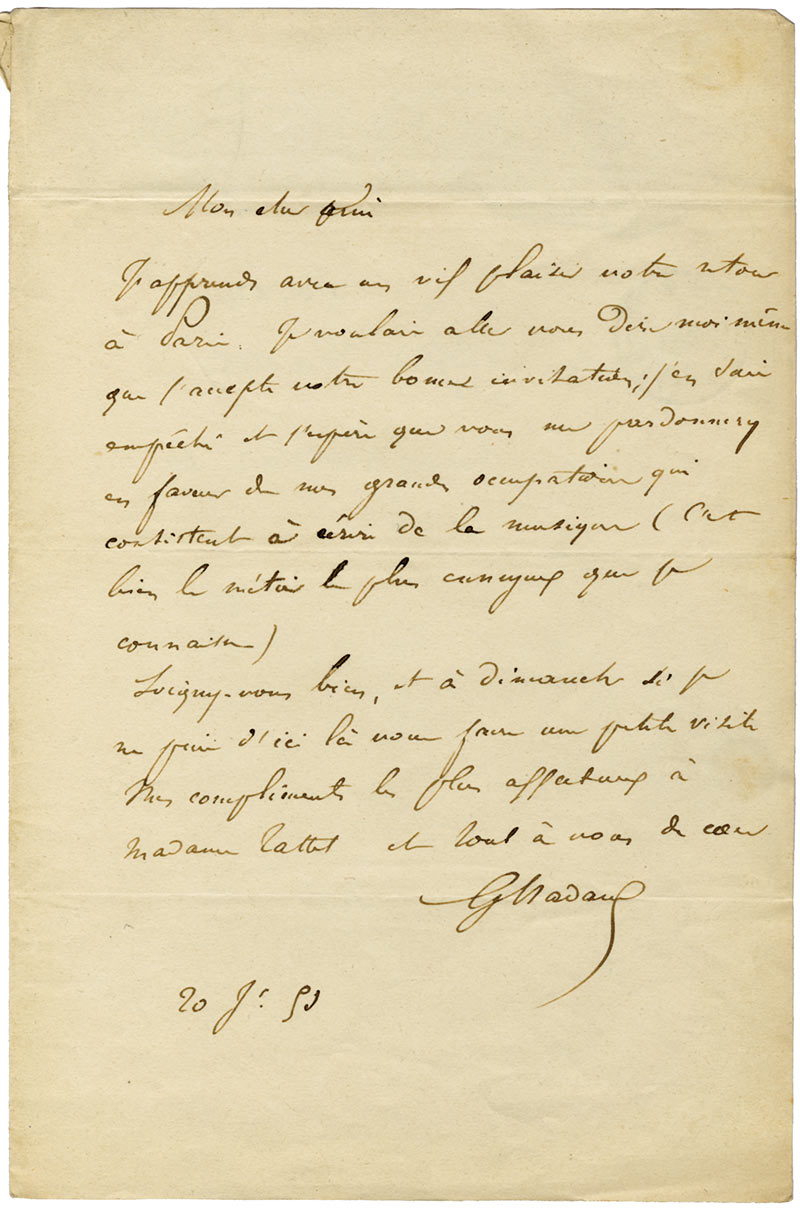 Mon cher ami
J'apprends avec un vif plaisir votre retour
à Paris. Je voulais aller vous dire moi même
que j'accepte votre bonne invitation; j'en suis
empêché et j'espère que vous me pardonnerez
en faveur de mes grandes occupations qui
consistent à écrire de la musique (C'est
bien le métier le plus ennuyeux que je
connaisse)
Soignez-vous bien, et à dimanche si je
ne puis d'ici là vous faire une petite visite
Mes compliments les plus affectueux à
Madame Tattet et tout à vous de cœur
G Nadaud
20 Jr.